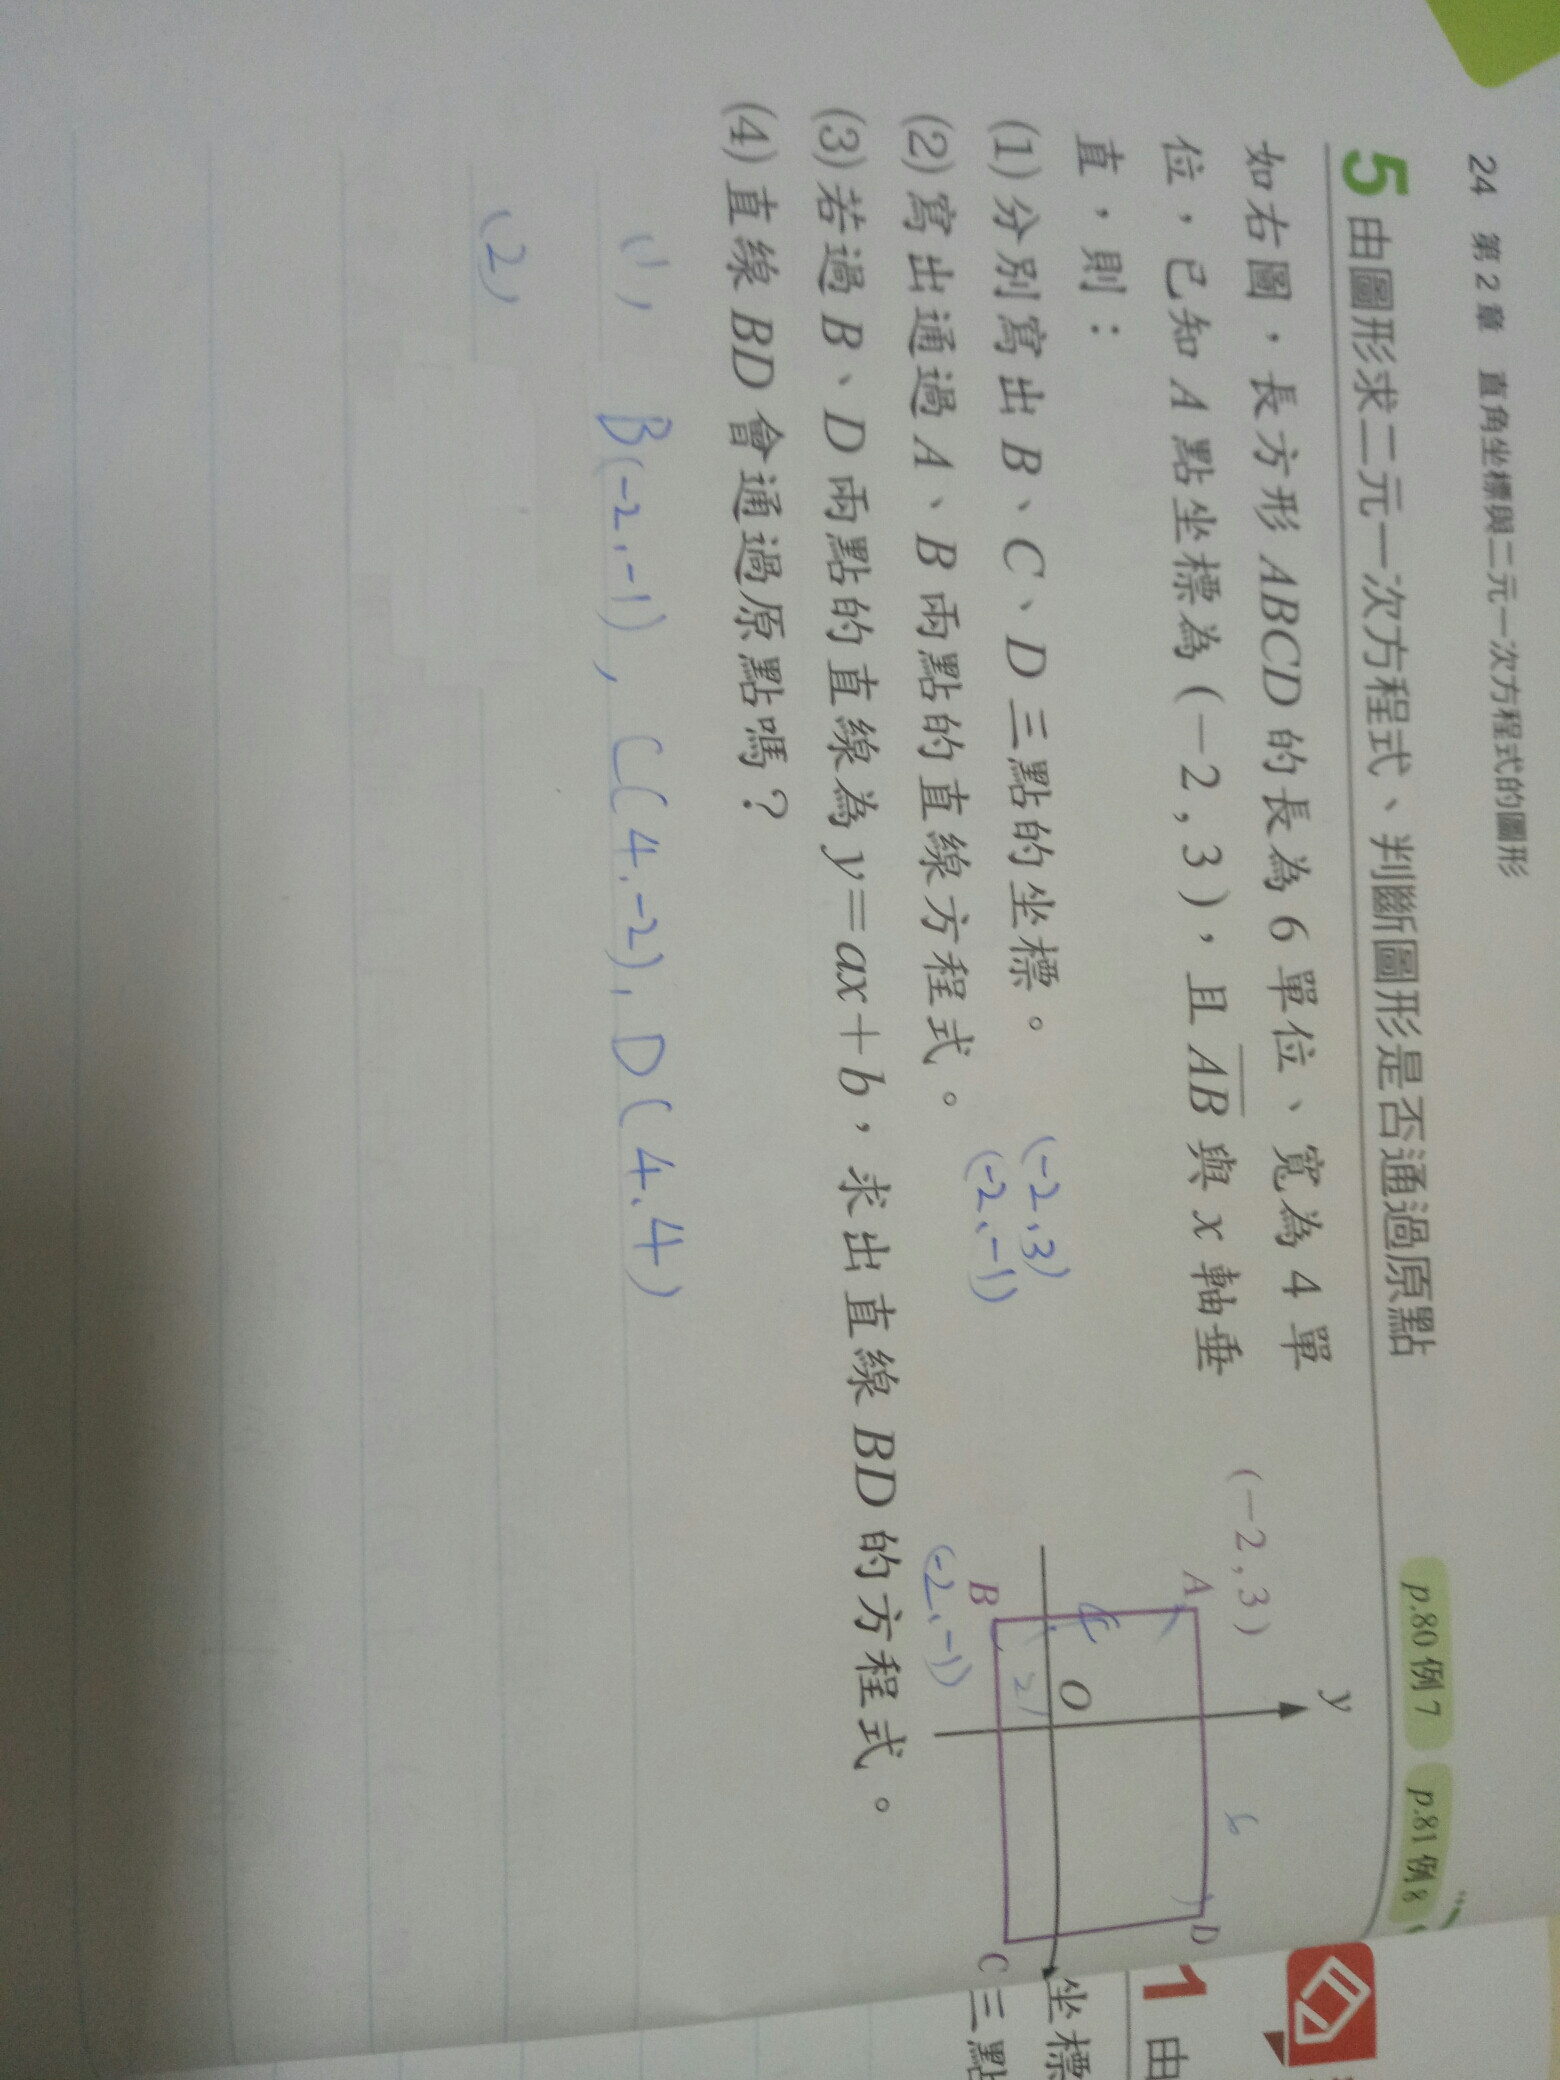 24 第2章 直角坐標與二元一次方程式的圖形
5 由圖形求二元一次方程式、判斷圖形是否通過原點
p.80 例 7 p.81 例 8
如右圖，長方形 ABCD 的長為 6 單位、寬為 4 單
位，已知 A 點坐標為 (－2 , 3 )，且 AB 與 x 軸垂
直，則：
(1) 分別寫出 B、C、D 三點的坐標。
(2) 寫出通過 A、B 兩點的直線方程式。
(3) 若過 B、D 兩點的直線為 y＝ax＋b，求出直線 BD 的方程式。
(4) 直線 BD 會通過原點嗎？
(-2,3)
(-2,-1)
y
(－2 , 3 )
6
A
D
4
O
2
B
C
(-2,-1)
(1) B(-2,-1), C(4,-2), D(4,4)
(2)
1 由
坐標
三點